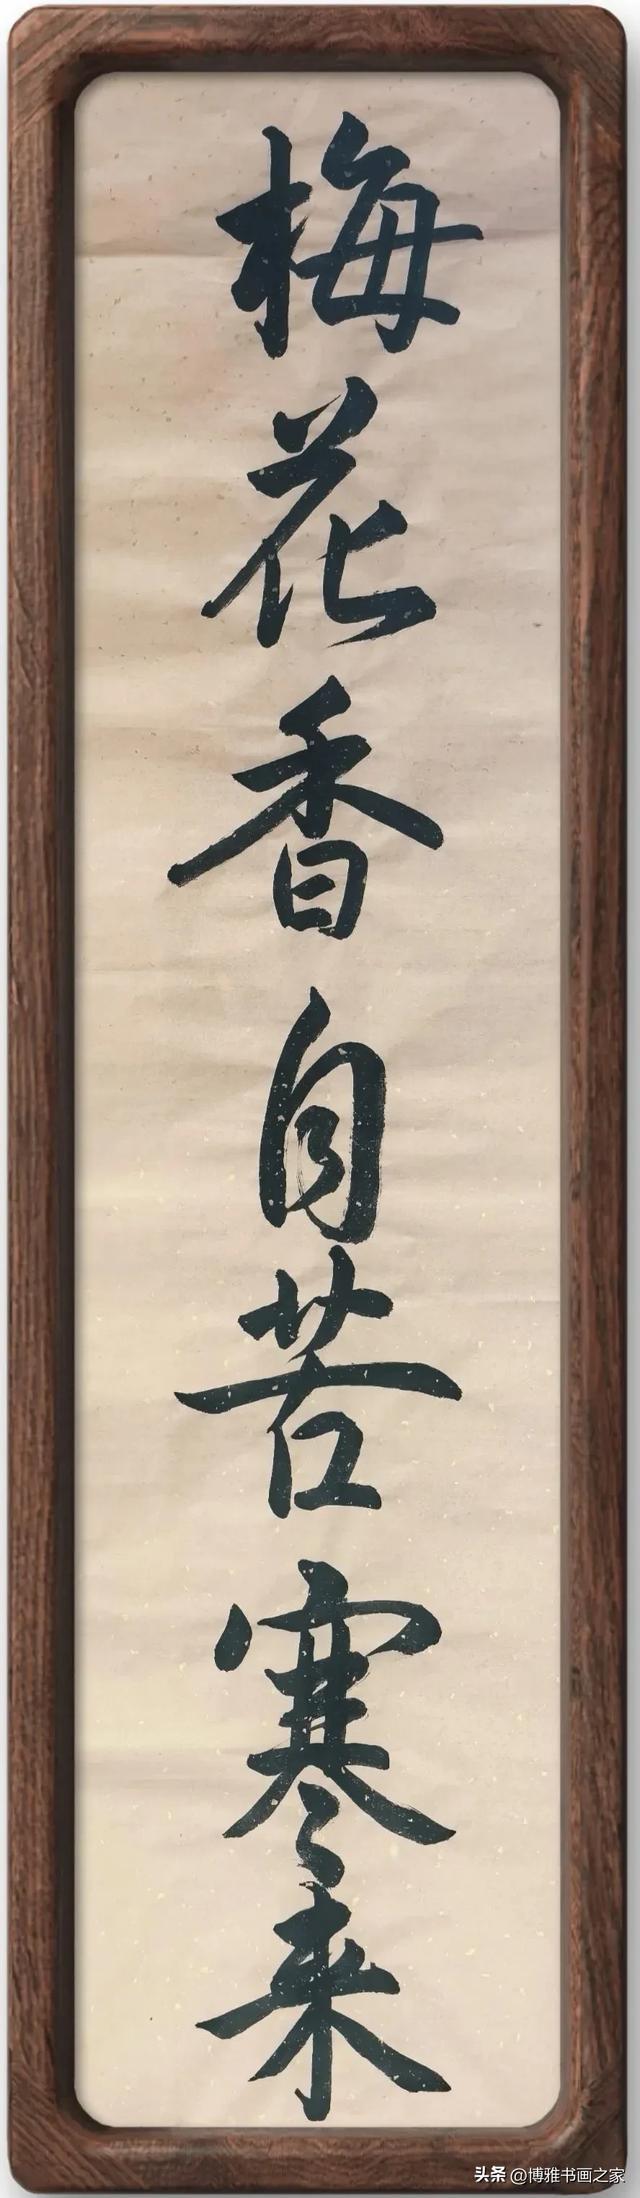 梅花香自苦寒来
头条 @博雅书画之家